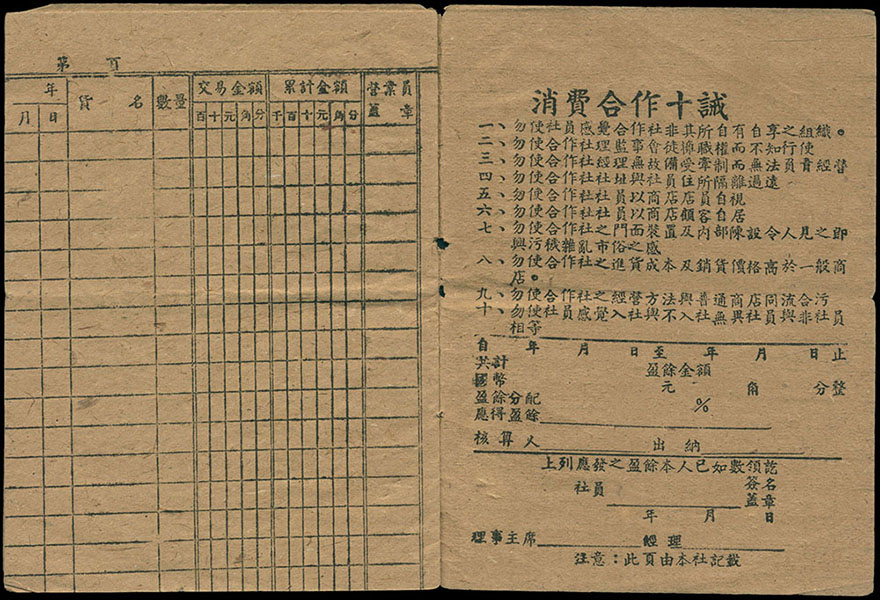 第 頁
年
月 日
貨 名
數量
交易金額
百十元角分
累計金額
千百十元角分
營業員
蓋章
消費合作十誡
一、勿使社員感覺合作社非其所有自享之組織。
二、勿使合作社理監事會職權而不知行使
三、勿使合作社經理無故備受牽制而無法負責經營
四、勿使合作社社址與社員住所隔離過遠
五、勿使合作社社員以商店店員自視
六、勿使合作社社員以商店顧客自居
七、勿使合作社之門面裝置及內部陳設令人見之即
興污穢雜亂市俗之感
八、勿使合作社之進貨成本及銷貨價格高於一般商
店。
九、勿使合作社之經營方法與普通商店同流合污
十、勿使社員感覺入社與不入社無異社員與非社員
相等
自 年 月 日至 年 月 日止
共計 盈餘金額
國幣 元 角 分整
盈餘分配 %
應得盈餘
核算人 出納
上列應發之盈餘本人已如數領訖
社員 簽名
蓋章
年 月 日
理事主席 經理
注意：此頁由本社記載